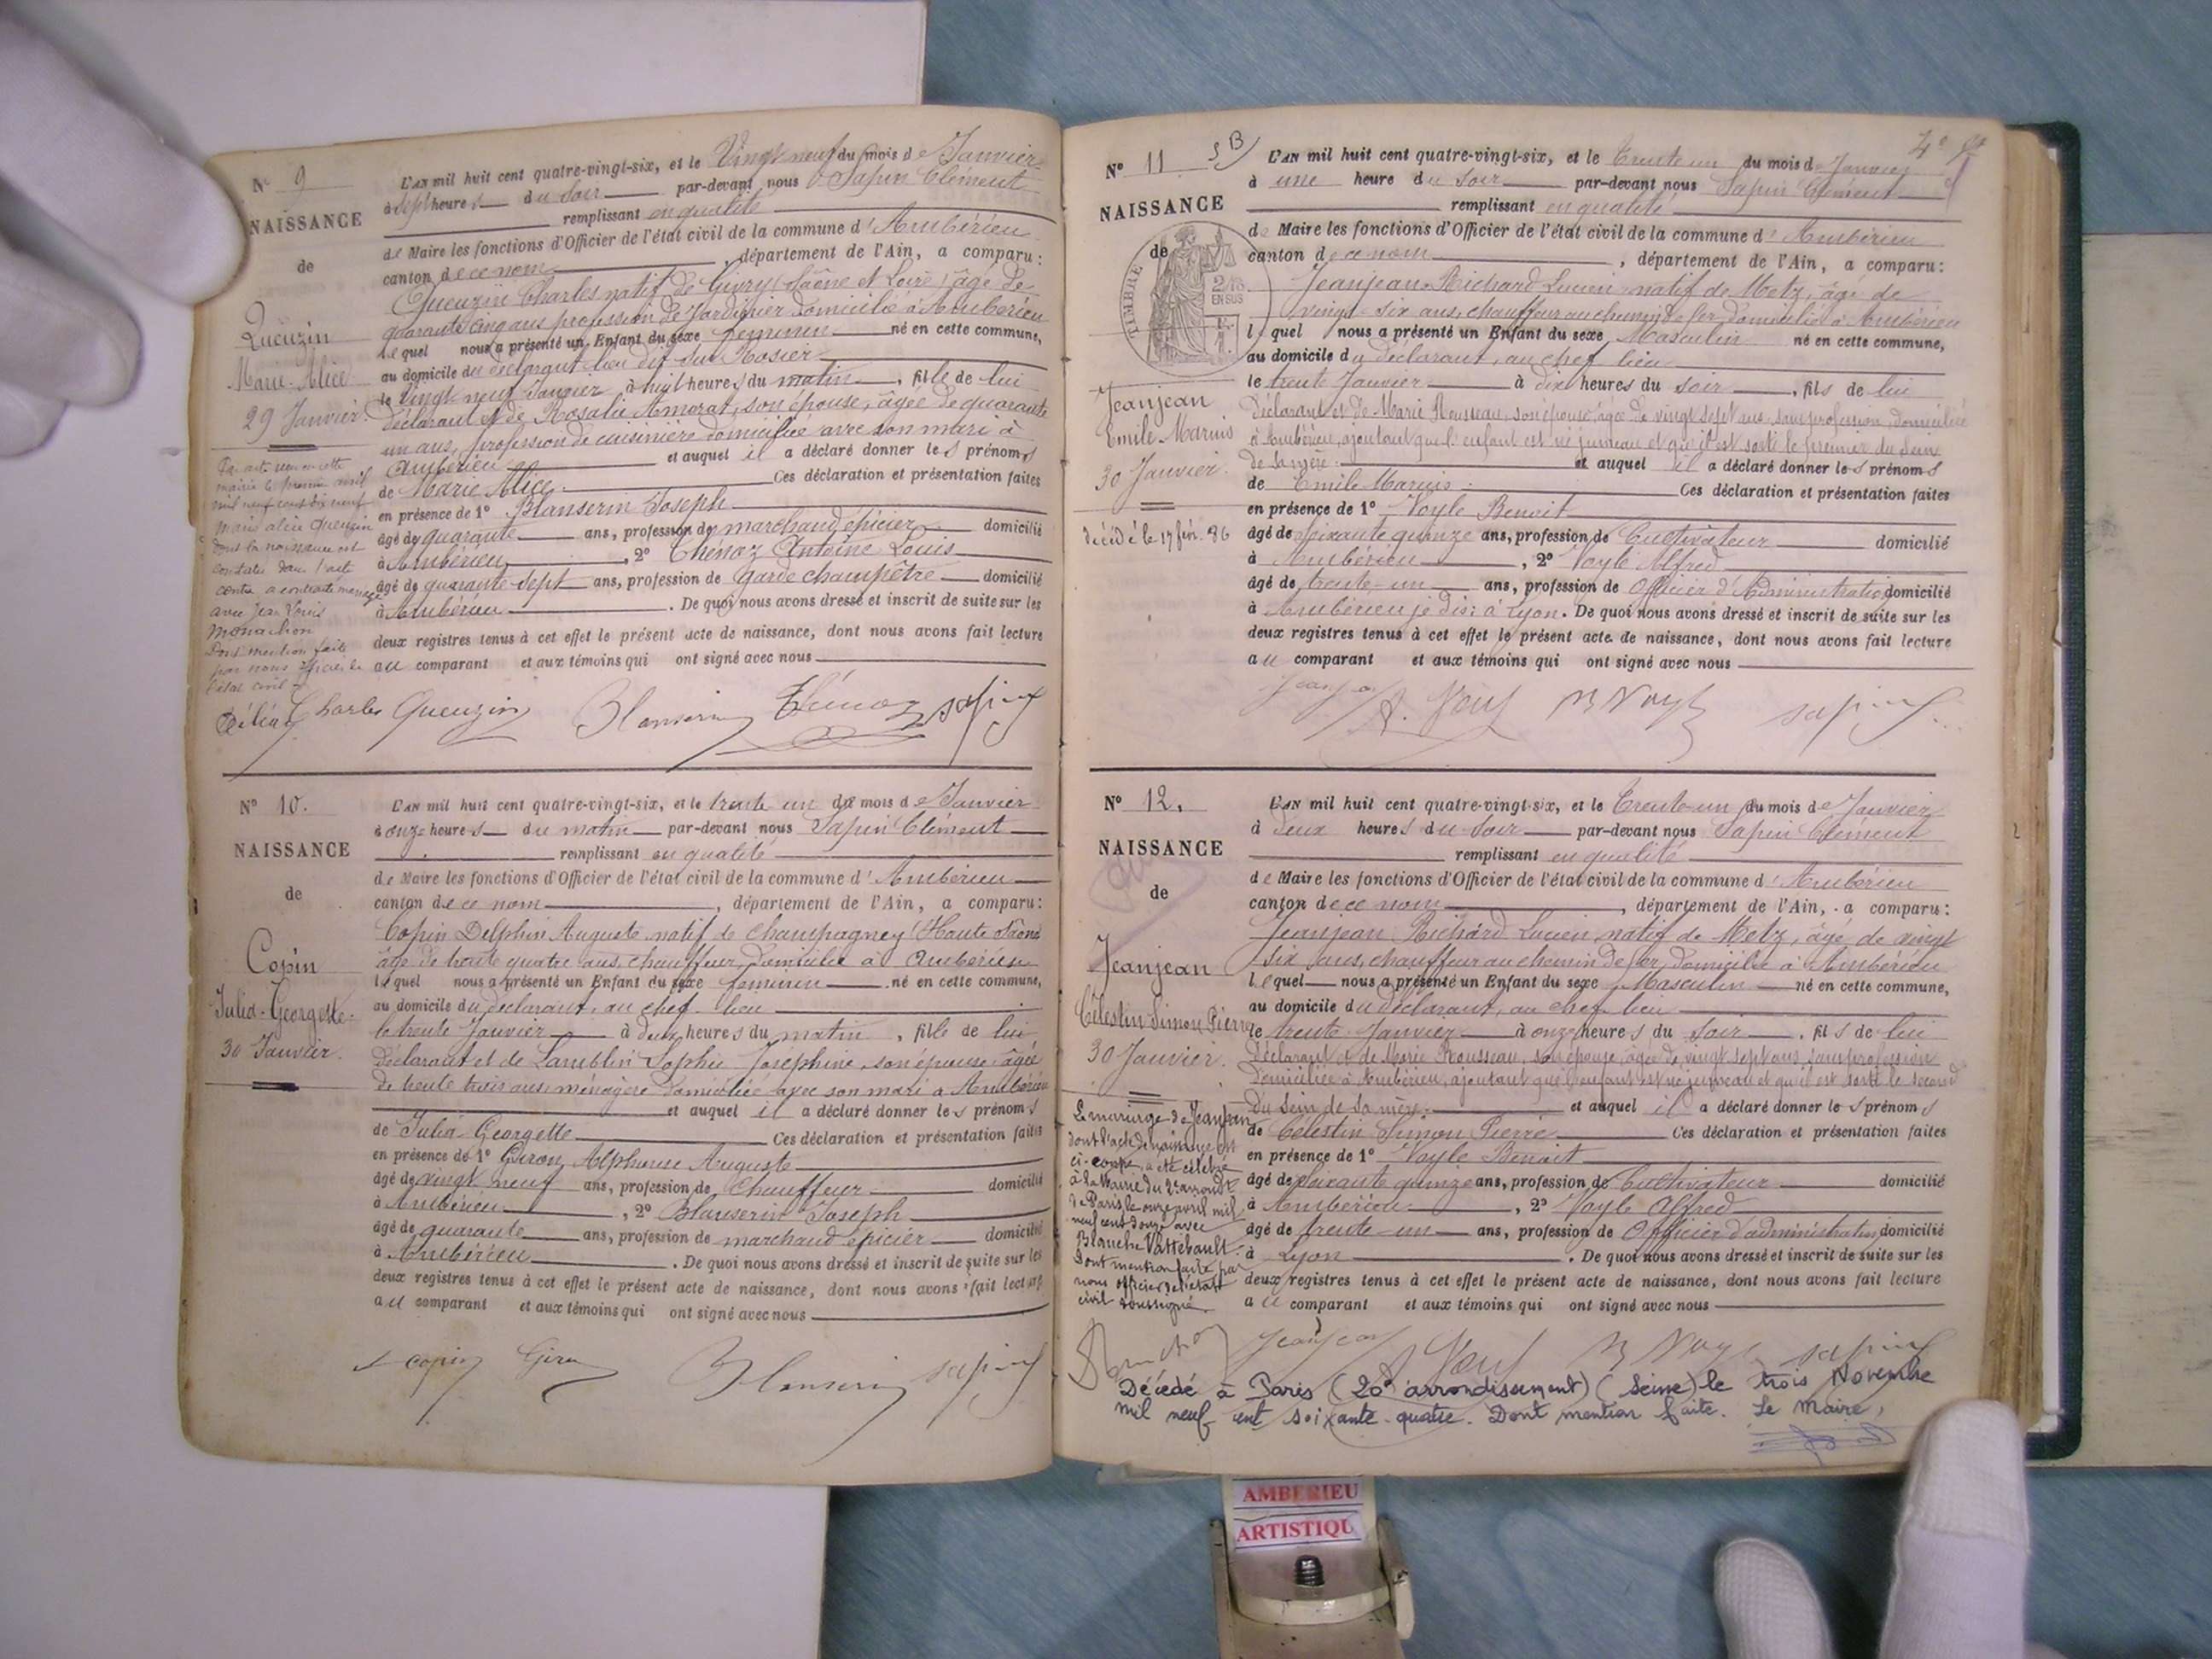 N° 9
NAISSANCE
de
Queuzin
Marie-Alice
29 Janvier
Par acte reçu en cette
mairie le premier avril
mil neuf cent dix neuf
Marie Alice Queuzin
dont la naissance est
constatée dans l'acte
contre a contracté mariage
avec Jean Louis
Monachon
Dont mention faite
par nous officier de
l'état civil
L'AN mil huit cent quatre-vingt-six, et le Vingt neuf du mois de Janvier
à sept heures du soir par-devant nous Sapin Clément
remplissant en qualité
de Maire les fonctions d'Officier de l'état civil de la commune d'Ambérieu
canton de ce nom, département de l'Ain, a comparu:
Queuzin Charles natif de Givry (Saône et Loire) âgé de
quarante cinq ans profession de Jardinier domicilié à Ambérieu
lequel nous a présenté un Enfant du sexe féminin né en cette commune,
au domicile du déclarant lieu dit sur Rosier
le vingt neuf Janvier, à huit heures du matin, fille de lui
déclarant et de Rosalie Amorat, son épouse, âgée de quarante
un ans, profession de cuisinière domiciliée avec son mari à
Ambérieu et auquel il a déclaré donner les prénoms
de Marie Alice. Ces déclaration et présentation faites
en présence de 1° Blanserin Joseph
âgé de quarante ans, profession de marchand épicier domicilié
à Ambérieu, 2° Thénoz Antoine Louis
âgé de quarante-sept ans, profession de garde champêtre domicilié
à Ambérieu. De quoi nous avons dressé et inscrit de suite sur les
deux registres tenus à cet effet le présent acte de naissance, dont nous avons fait lecture
au comparant et aux témoins qui ont signé avec nous
Charles Queuzin Blanserin Thénoz Sapin
N° 10.
NAISSANCE
de
Copin
Julia-Georgette
30 Janvier.
L'AN mil huit cent quatre-vingt-six, et le trente un du mois de Janvier
à onze heures du matin par-devant nous Sapin Clément
remplissant en qualité
de Maire les fonctions d'Officier de l'état civil de la commune d'Ambérieu
canton de ce nom, département de l'Ain, a comparu:
Copin Delphin Auguste natif de Champagney (Haute Saône
âgé de trente quatre ans, chauffeur, domicilié à Ambérieu
lequel nous a présenté un Enfant du sexe féminin né en cette commune,
au domicile du déclarant, au chef-lieu
le trente Janvier à deux heures du matin, fille de lui
déclarant et de Lamblin Sophie Joséphine, son épouse âgée
de trente trois ans ménagère domiciliée avec son mari à Ambérieu
et auquel il a déclaré donner les prénoms
de Julia Georgette Ces déclaration et présentation faites
en présence de 1° Giron Alphonse Auguste
âgé de vingt neuf ans, profession de chauffeur domicilié
à Ambérieu, 2° Blanserin Joseph
âgé de quarante ans, profession de marchand épicier domicilié
à Ambérieu. De quoi nous avons dressé et inscrit de suite sur les
deux registres tenus à cet effet le présent acte de naissance, dont nous avons fait lecture
au comparant et aux témoins qui ont signé avec nous
copin Giron Blanserin Sapin
4e
N° 11
NAISSANCE
de
TIMBRE
EN SUS
Jeanjean
Emile-Marius
30 Janvier.
décédé le 17 fév. 86
L'AN mil huit cent quatre-vingt-six, et le Trente un du mois de Janvier
à une heure du soir par-devant nous Sapin Clément
remplissant en qualité
de Maire les fonctions d'Officier de l'état civil de la commune d'Ambérieu
canton de ce nom, département de l'Ain, a comparu:
Jeanjean Richard Lucien natif de Metz, âgé de
vingt-six ans, chauffeur au chemin de fer, domicilié à Ambérieu
lequel nous a présenté un Enfant du sexe Masculin né en cette commune,
au domicile du déclarant, au chef lieu
le trente Janvier à dix heures du soir, fils de lui
déclarant et de Marie Rousseau, son épouse, âgée de vingt sept ans, sans profession, domiciliée
à Ambérieu, ajoutant que l'enfant est né jumeau et qu'il est sorti le premier du sein
de sa mère. et auquel il a déclaré donner les prénoms
de Emile Marius. Ces déclaration et présentation faites
en présence de 1° Voyle Benoit
âgé de soixante quinze ans, profession de Cultivateur domicilié
à Ambérieu, 2° Voyle Alfred
âgé de trente-un ans, profession de Officier d'Administration domicilié
à Ambérieu je dis: à Lyon. De quoi nous avons dressé et inscrit de suite sur les
deux registres tenus à cet effet le présent acte de naissance, dont nous avons fait lecture
au comparant et aux témoins qui ont signé avec nous
Jeanjean A. Voyl B Voyle Sapin
N° 12.
NAISSANCE
de
Jeanjean
Célestin Simon Pierre
30 Janvier.
Le mariage de Jeanjean
dont l'acte de naissance est
ci-contre, a été célébré
à la Mairie du 2e arrondt
de Paris le onze avril mil
neuf cent douze avec
Blanche Vattebault.
Dont mention faite par
nous officier de l'état
civil soussigné
L'AN mil huit cent quatre-vingt-six, et le Trente-un du mois de Janvier
à deux heures du soir par-devant nous Sapin Clément
remplissant en qualité
de Maire les fonctions d'Officier de l'état civil de la commune d'Ambérieu
canton de ce nom, département de l'Ain, a comparu:
Jeanjean Richard Lucien, natif de Metz, âgé de vingt
six ans, chauffeur au chemin de fer, domicilié à Ambérieu
lequel nous a présenté un Enfant du sexe Masculin né en cette commune,
au domicile du déclarant, au chef lieu
le trente Janvier à onze heures du soir, fils de lui
déclarant et de Marie Rousseau, son épouse, âgée de vingt sept ans, sans profession
domiciliée à Ambérieu, ajoutant que l'enfant est né jumeau et qu'il est sorti le second
du sein de sa mère. et auquel il a déclaré donner les prénoms
de Célestin Simon Pierre. Ces déclaration et présentation faites
en présence de 1° Voyle Benoit
âgé de soixante quinze ans, profession de Cultivateur domicilié
à Ambérieu, 2° Voyle Alfred
âgé de trente-un ans, profession de Officier d'administration domicilié
à Lyon. De quoi nous avons dressé et inscrit de suite sur les
deux registres tenus à cet effet le présent acte de naissance, dont nous avons fait lecture
au comparant et aux témoins qui ont signé avec nous
Jeanjean A. Voyl B Voyle Sapin
Décédé à Paris (20e arrondissement) (Seine) le trois Novembre
mil neuf cent soixante-quatre. Dont mention faite. Le Maire,
AMBERIEU
ARTISTIQU